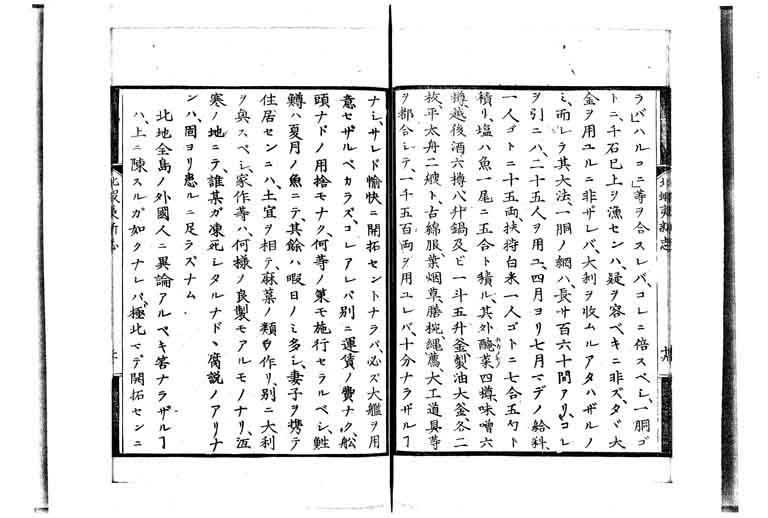 ラバ「ハルコニ」等ヲ合スレバ、コレニ倍スベシ、一胴ゴ
トニ、千石已上ヲ漁センハ、疑ヲ容ベキニ非ズ、タヾ大
金ヲ用ユルニ非ザレバ、大利ヲ收ムルアタハザルノ
ミ、而シテ其大法、一胴ノ網ハ、長サ百六十間アリ、コレ
ヲ引ニハ、二十五人ヲ用ユ、四月ヨリ七月マデノ給料、
一人ゴトニ十五両、扶持白米一人ゴトニ七合五勺ト
積リ、塩ハ魚一尾ニ五合ト積ル、其外醃菜四樽、味噌六
樽、越後酒六樽、八升鍋及ビ一斗五升釜、製油大釜、各二
枚、平太舟二艘ト、古綿服、葉烟草、膳椀、縄、薦、大工道具等
ヲ都合シテ、一千五百両ヲ用ユレバ、十分ナラザルヿ
ナシ、サレド愉快ニ開拓セントナラバ、必ズ大艦ヲ用
意セザルベカラズ、コレアレバ別ニ運賃ノ費ナク、舩
頭ナドノ用捨モナク、何等ノ策モ施行セラルベシ、鮏
鱒ハ夏月ノ魚ニテ、其餘ハ暇日ノミ多シ、妻子ヲ携テ
住居センニハ、土宜ヲ相テ、麻菜ノ類ヲ作リ、別ニ大利
ヲ與スベシ、家作等ハ、何様ノ良製モアルモノナリ、沍
寒ノ地ニテ、誰某ガ凍死シタルナド、腐説ノアリナ
ンハ、固ヨリ患ルニ足ラズナム、
北地全島ノ外國人ニ異論アルベキ筈ナラザルヿ
ハ、上ニ陳スルガ如クナレバ、極北マデ開拓センニ